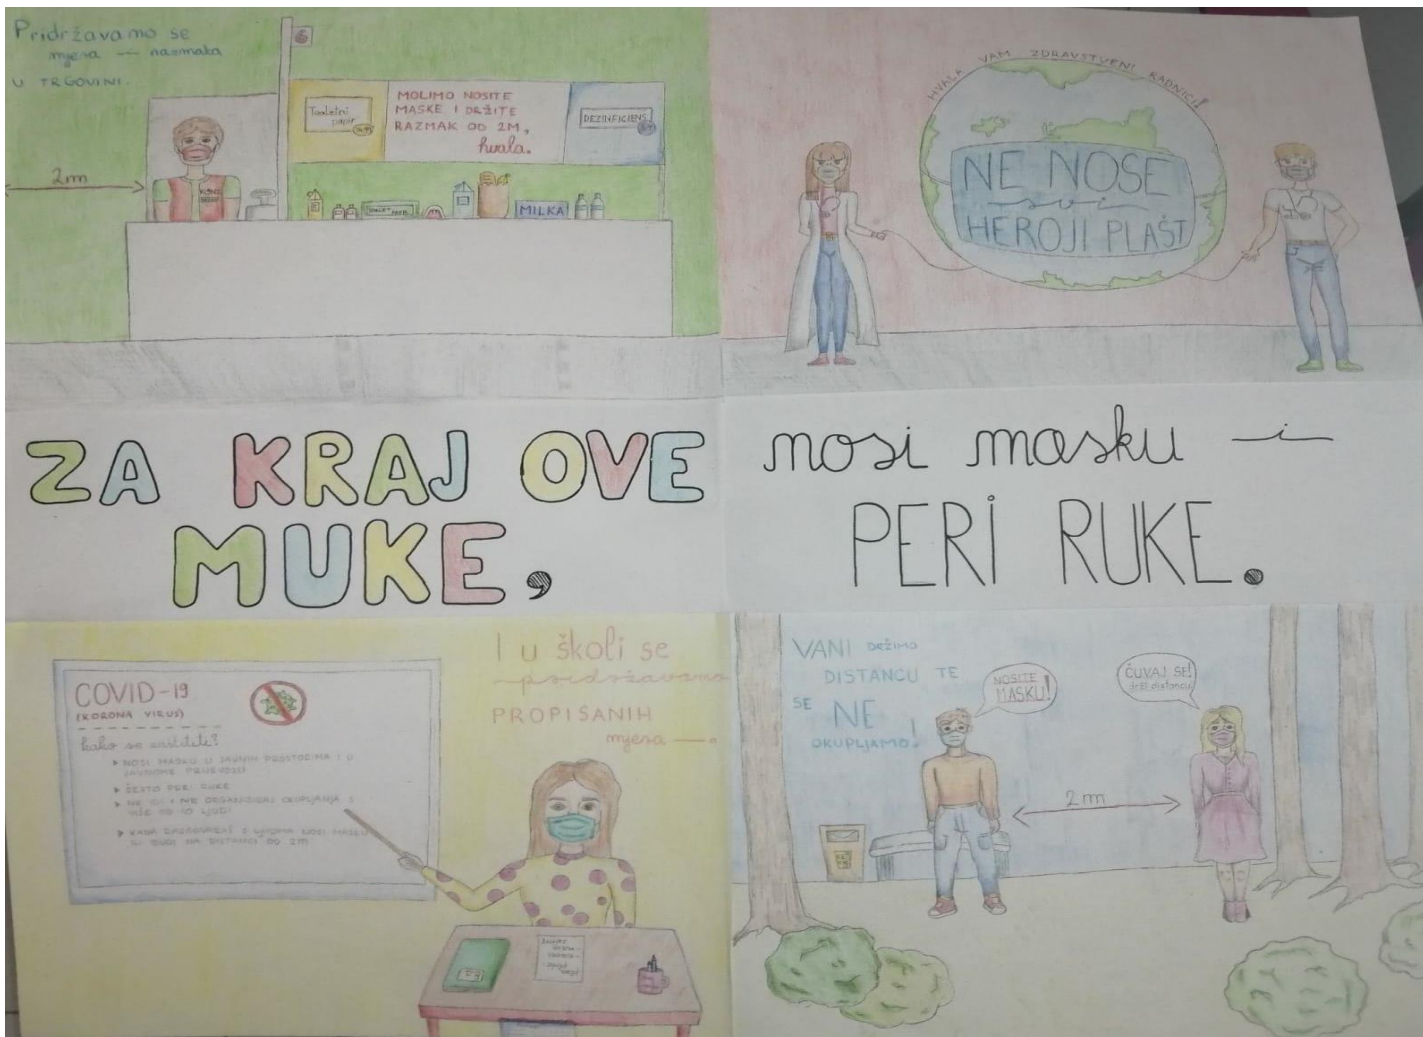 Pridržavamo se
mjera i razmaka
U TRGOVINI.
2m
Toaletni
papir
MOLIMO NOSITE
MASKE I DRŽITE
RAZMAK OD 2M,
hvala.
DEZINFICIENS
MILKA
HVALA VAM ZDRAVSTVENI RADNICI!
NE NOSE
svi
HEROJI PLAŠT
ZA KRAJ OVE
MUKE,
nosi masku i
PERI RUKE.
COVID-19
(KORONA VIRUS)
kako se zaštititi?
NOSI MASKU U JAVNIM PROSTORIMA I U
JAVNOME PRIJEVOZU
ČESTO PERI RUKE
NE IDI I NE ORGANIZIRAJ OKUPLJANJA S
VIŠE OD 10 LJUDI
KADA RAZGOVARAŠ S LJUDIMA NOSI MASKU
ILI BUDI NA DISTANCI OD 2M
I u školi se
pridržavamo
PROPISANIH
mjera
VANI DRŽIMO
DISTANCU TE
SE NE
OKUPLJAMO!
NOSITE
MASKU!
ČUVAJ SE!
drži distancu
2m